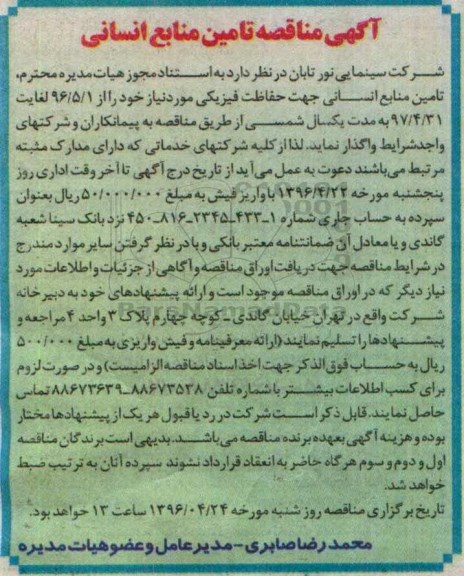 آگهی مناقصه تامین منابع انسانی
شرکت سینمایی نور تابان در نظر دارد به استناد مجوز هیات مدیره محترم،
تامین منابع انسانی جهت حفاظت فیزیکی مورد نیاز خود را از ۹۶/۵/۱ لغایت
۹۷/۴/۳۱ به مدت یکسال شمسی از طریق مناقصه به پیمانکاران و شرکتهای
واجد شرایط واگذار نماید. لذا از کلیه شرکتهای خدماتی که دارای مدارک مثبته
مرتبط می باشند دعوت به عمل می آید از تاریخ درج آگهی تا آخر وقت اداری روز
پنجشنبه مورخه ۱۳۹۶/۴/۲۲ با واریز فیش به مبلغ ۵۰/۰۰۰/۰۰۰ ریال بعنوان
سپرده به حساب جاری شماره ۱-۴۳۳-۲۳۴۵-۸۱۶-۴۵۰ نزد بانک سینا شعبه
گاندی و یا معادل آن ضمانتنامه معتبر بانکی و با در نظر گرفتن سایر موارد مندرج
در شرایط مناقصه جهت دریافت اوراق مناقصه و آگاهی از جزئیات و اطلاعات مورد
نیاز دیگر که در اوراق مناقصه موجود است و ارائه پیشنهادهای خود به دبیرخانه
شرکت واقع در تهران خیابان گاندی - کوچه چهارم پلاک ۳ واحد ۴ مراجعه و
پیشنهادها را تسلیم نمایند (ارائه معرفینامه و فیش واریزی به مبلغ ۵۰۰/۰۰۰
ریال به حساب فوق الذکر جهت اخذ اسناد مناقصه الزامیست) و در صورت لزوم
برای کسب اطلاعات بیشتر با شماره تلفن ۸۸۶۷۳۵۳۸-۸۸۶۷۳۶۳۹ تماس
حاصل نمایند. قابل ذکر است شرکت در رد یا قبول هر یک از پیشنهادها مختار
بوده و هزینه آگهی بعهده برنده مناقصه می باشد. بدیهی است برندگان مناقصه
اول و دوم و سوم هر گاه حاضر به انعقاد قرارداد نشوند سپرده آنان به ترتیب ضبط
خواهد شد.
تاریخ برگزاری مناقصه روز شنبه مورخه ۱۳۹۶/۰۴/۲۴ ساعت ۱۳ خواهد بود.
محمد رضا صابری - مدیر عامل و عضو هیات مدیره